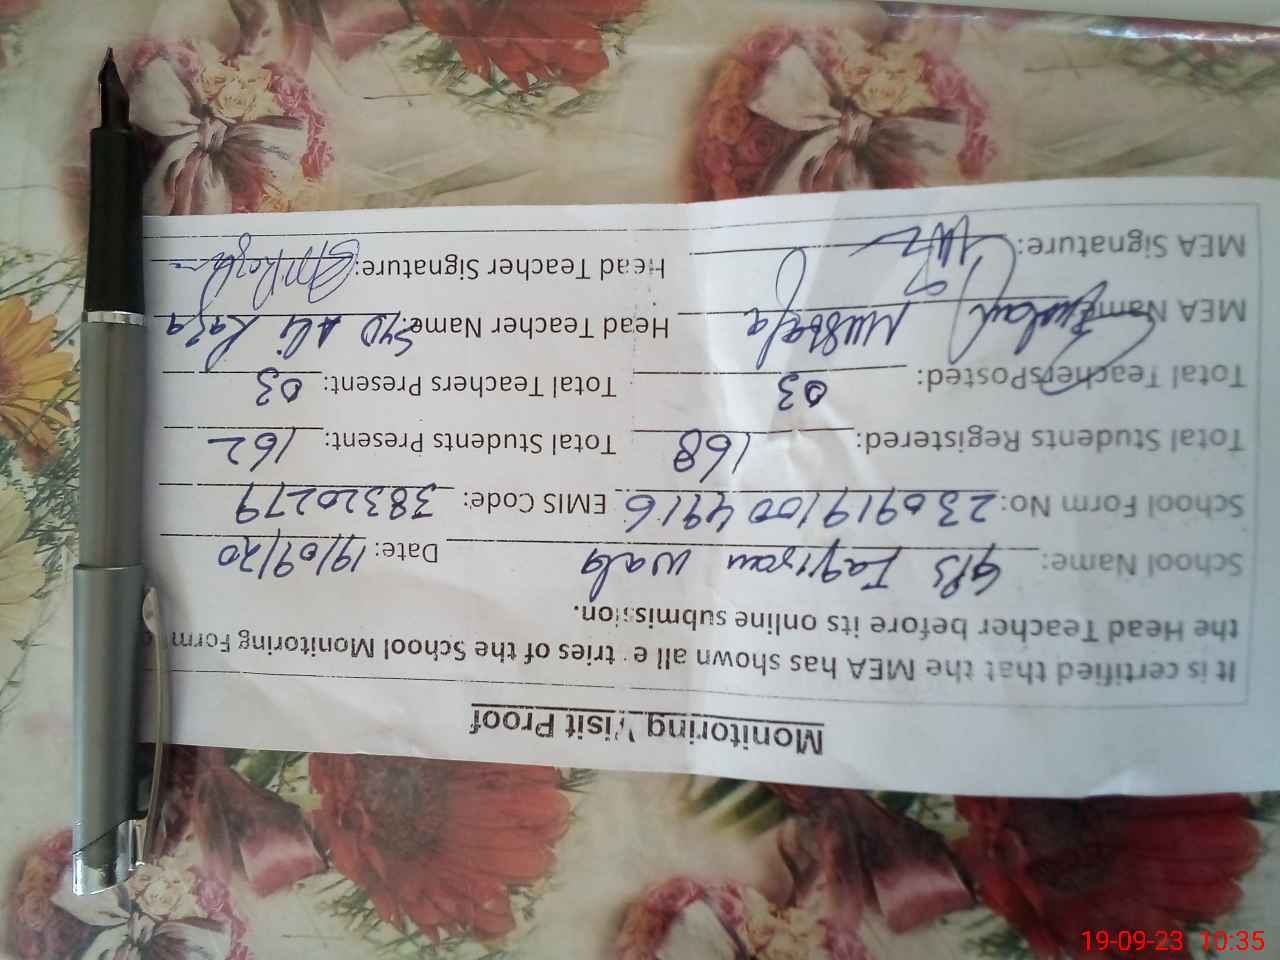 Monitoring Visit Proof
It is certified that the MEA has shown all entries of the School Monitoring Form
the Head Teacher before its online submission.
School Name: GPS Wala Date: 19/09/20
School Form No: 230919100 4916 EMIS Code: 38320279
Total Students Registered: 168 Total Students Present: 162
Total TeachersPosted: 03 Total Teachers Present: 03
MEA Name: Ghulam Mustafa Head Teacher Name: Syd Ali Raza
MEA Signature: Head Teacher Signature:
19-09-23 10:35